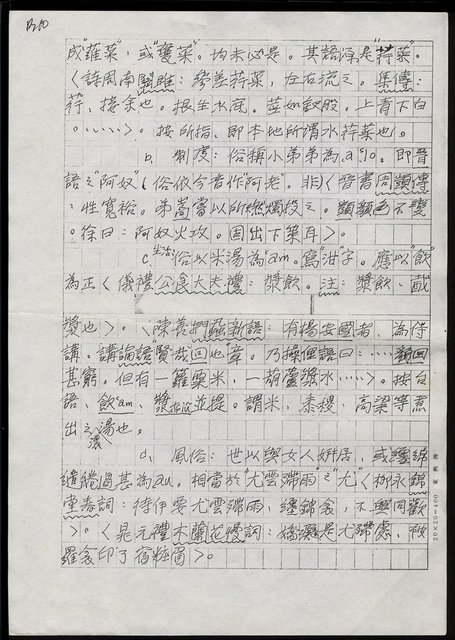 B10
成"蕹菜",或"甕菜"。均未必是。其語源是"荇菜"。
〈詩周南關雎:參差荇菜,左右流之。集傳:
荇,接余也。根生水底,莖如釵股,上青下白
。……〉。按所指,即本地所謂水荇菜也。
b, 制度:俗稱小弟弟為a lo。即晉
語之"阿奴"(俗依今音作"阿老"。非)〈晉書周顗傳
:性寬裕。弟嵩嘗以所燃燭投之。顗顏色不變
。徐曰:阿奴火攻。固出下策耳〉。
c,生活:俗以米湯為am。寫"泔"字。應以"飲"
為正〈儀禮公食大夫禮:漿飲。注:漿飲、酨
漿也〉。〈陳善捫蝨新語:有揚安國者、為侍
講。講論語賢哉回也章。乃操俚語曰:……顏回
甚窮。但有一籮粟米,一葫蘆漿水……〉。按台
語、飲am、漿 並提。謂米,黍稷,高粱等煮
出之濃湯也。
d, 風俗:世以與女人姘居,或纏綿
繾綣過甚為au。相當於"尤雲殢雨"之"尤"〈柳永錦
堂春詞:待伊要尤雲殢雨,纏錦衾,不與同歡
〉。〈晁元禮木蘭花慢詞:嬌癡是尤殢處,被
羅衾印了宿粧眉〉。
20×20=400